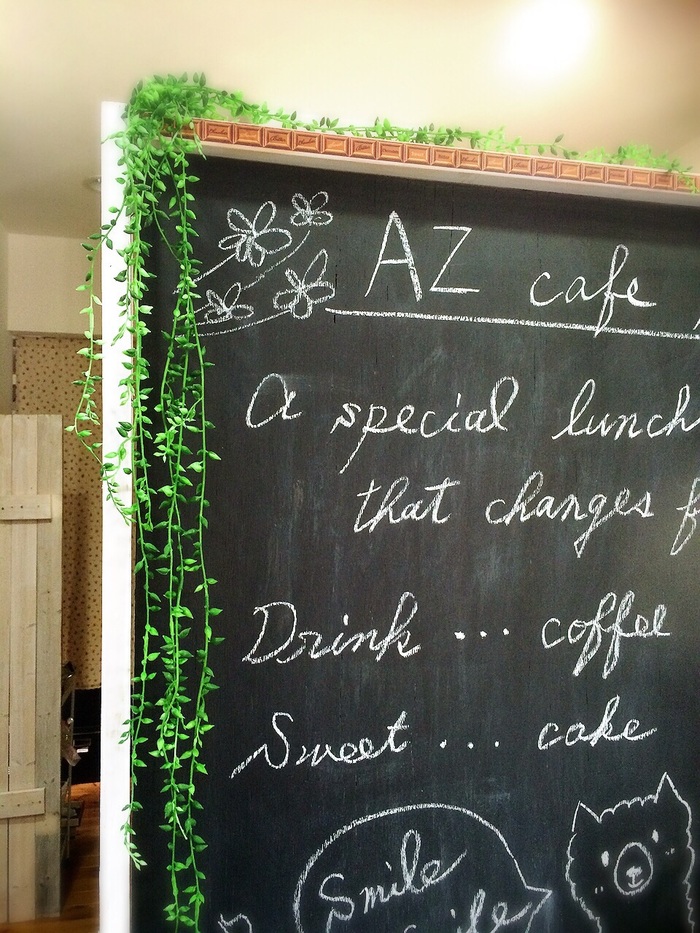 AZ cafe
A special lunch
that changes f
Drink ... coffee
Sweet ... cake
Smile